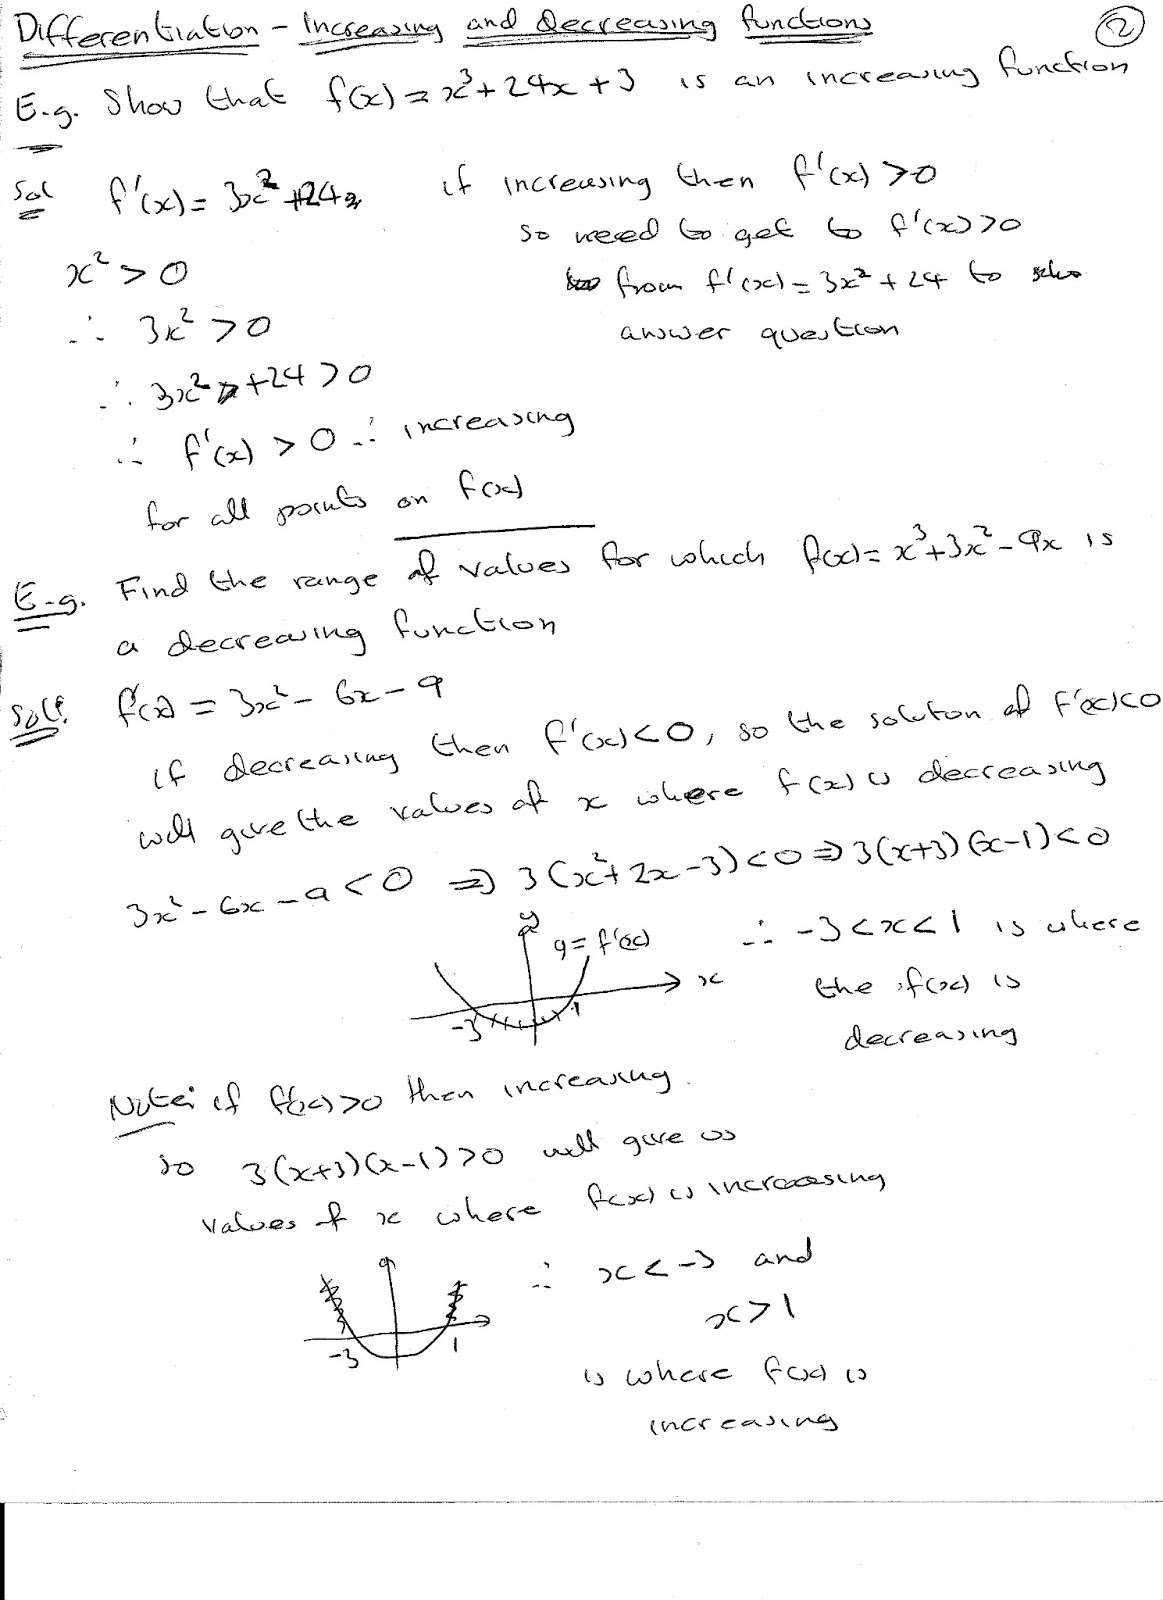 Differentiation - Increasing and decreasing functions
2
E.g. Show that f(x) = x³ + 24x + 3 is an increasing function
Sol f'(x) = 3x² + 24, if increasing then f'(x) > 0
so need to get to f'(x) > 0
x² > 0
from f'(x) = 3x² + 24 to
∴ 3x² > 0
answer question
∴ 3x² + 24 > 0
∴ f'(x) > 0 ∴ increasing
for all points on f(x)
E.g. Find the range of values for which f(x) = x³ + 3x² - 9x is
a decreasing function
Sol. f'(x) = 3x² - 6x - 9
if decreasing then f'(x) < 0, so the soluton of f'(x) < 0
will give the values of x where f(x) is decreasing
3x² - 6x - 9 < 0 ⇒ 3(x² + 2x - 3) < 0 ⇒ 3(x+3)(x-1) < 0
y
y = f'(x) ∴ -3 < x < 1 is where
x
the f(x) is
-3 1
decreasing
Note: if f'(x) > 0 then increasing.
so 3(x+3)(x-1) > 0 will give us
values of x where f(x) is increasing
∴ x < -3 and
x > 1
-3 1
is where f(x) is
increasing